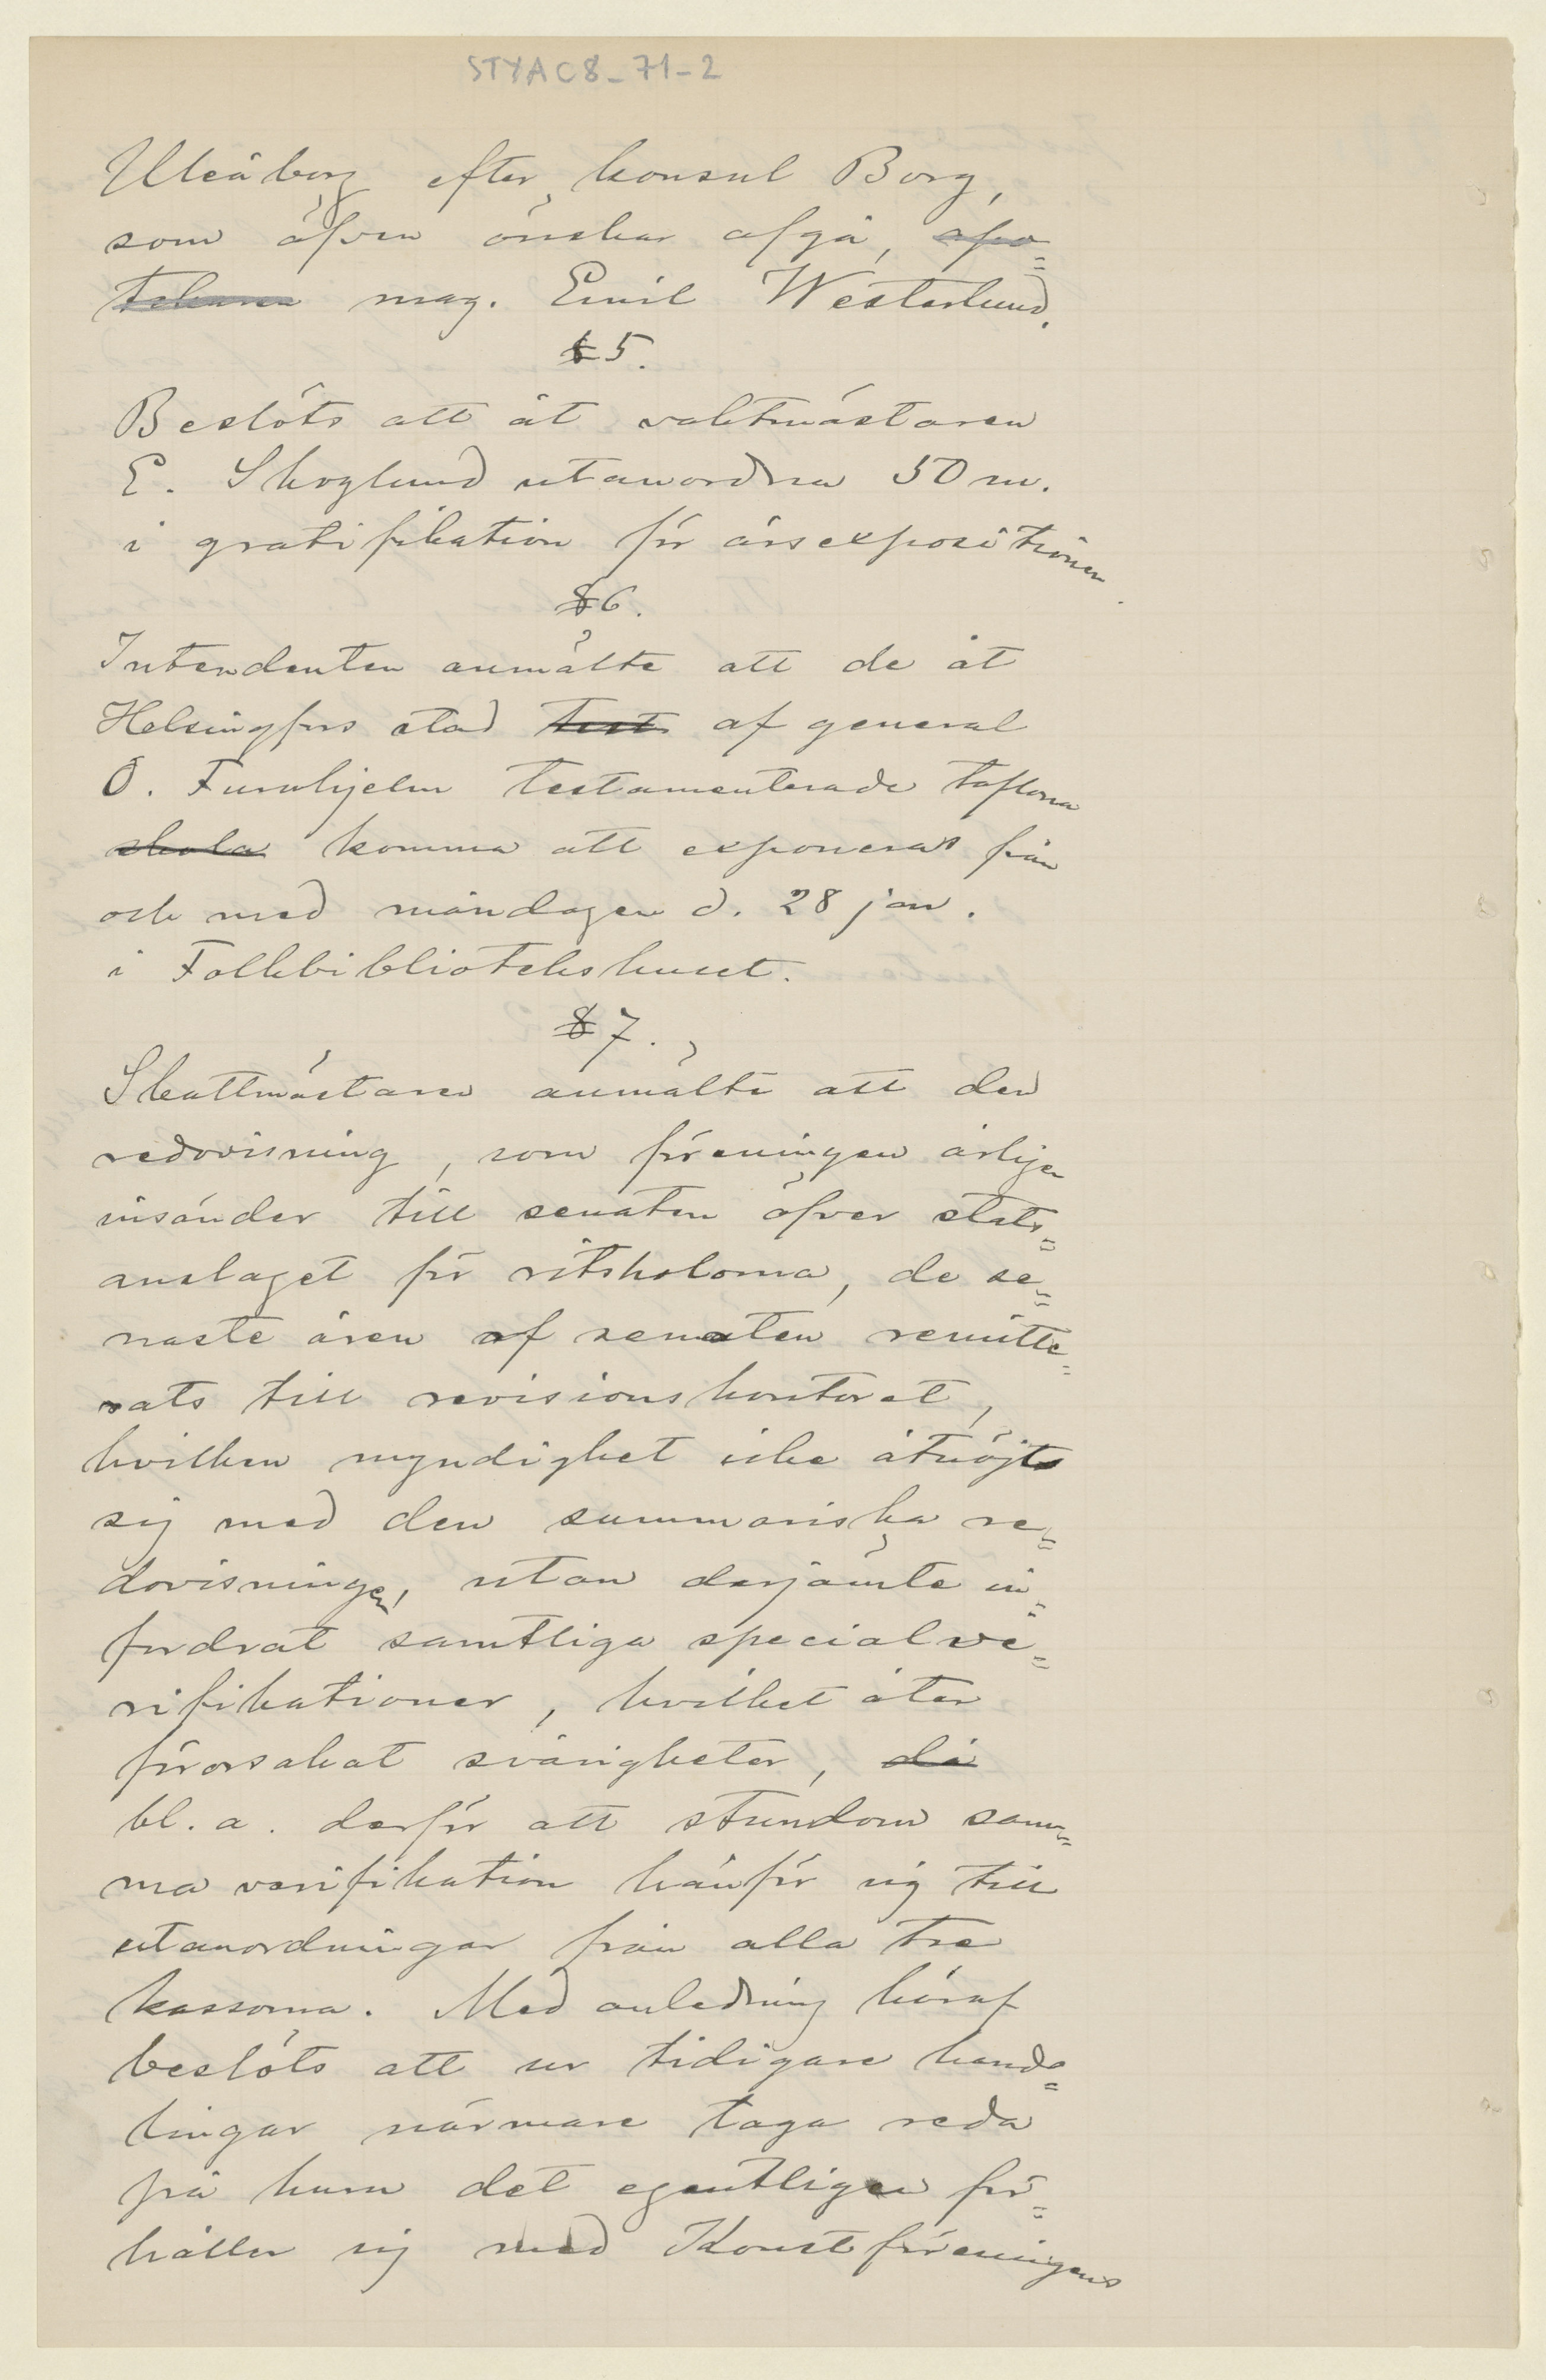 STYAC8_71-2
Uleåborg efter konsul Borg,
som äfven önskar afgå, apo=
tekaren mag. Emil Westerlund.
§ 5.
Beslöts att åt vaktmästaren
E. Skoglund utanordna 50 m.
i gratifikation för årsexpositionen.
§ 6.
Intendenten anmälte att de åt
Helsingfors stad test af general
O. Furuhjelm testamenterade taflorna
skola komma att exponeras från
och med måndagen d. 28 jan.
i Folkbibliotekshuset.
§ 7.
Skattmästaren anmälte att den
redovisning, som föreningen årligen
insänder till senaten öfver stats=
anslaget för ritskolorna, de se=
naste åren af senaten remitte=
rats till revisionskontoret,
hvilken myndighet icke åtnöjts
sig med den summariska re=
dovisningen, utan derjämte in=
fordrat samtliga specialve=
rifikationer, hvilket åter
förorsakat svårigheter, då
bl. a. derför att stundom sam=
ma verifikation hänför sig till
utanordningar från alla tre
kassorna. Med anledning häraf
beslöts att ur tidigare hand=
lingar närmare taga reda
på huru det egentligen för=
håller sig med Konstföreningens